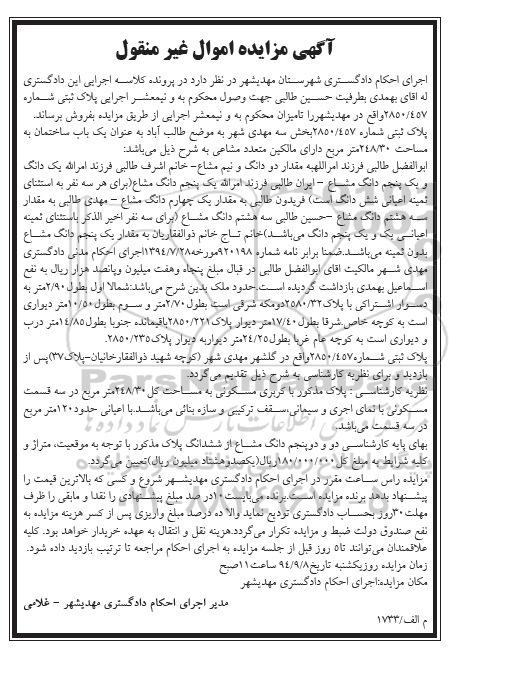 آگهی مزایده اموال غیر منقول
اجرای احکام دادگستری شهرستان مهدیشهر در نظر دارد در پرونده کلاسه اجرایی این دادگستری
له اقای بهمدی بطرفیت حسین طالبی جهت وصول محکوم به و نیمعشر اجرایی پلاک ثبتی شماره
۲۸۵۰/۴۵۷واقع در مهدیشهررا تامیزان محکوم به و نیمعشر اجرایی از طریق مزایده بفروش برساند.
پلاک ثبتی شماره ۲۸۵۰/۴۵۷بخش سه مهدی شهر به موضع طالب آباد به عنوان یک باب ساختمان به
مساحت ۲۴۸/۳۰متر مربع دارای مالکین متعدد مشاعی به شرح ذیل می‌باشد:
ابوالفضل طالبی فرزند امراللهبه مقدار دو دانگ و نیم مشاع- خانم اشرف طالبی فرزند امرالله یک دانگ
و یک پنجم دانگ مشاع - ایران طالبی فرزند امرالله یک پنجم دانگ مشاع(برای هر سه نفر به استثنای
ثمینه اعیانی شش دانگ است) فریدون طالبی به مقدار یک چهارم دانگ مشاع - مهدی طالبی به مقدار
سه هشتم دانگ مشاع -حسین طالبی سه هشتم دانگ مشاع (برای سه نفر اخیر الذکر باستثنای ثمینه
اعیانی یک و یک پنجم دانگ می‌باشد)خانم تاج خانم ذوالفقاریان به مقدار یک پنجم دانگ مشاع
بدون ثمینه می‌باشد.ضمنا برابر نامه شماره ۹۲۰۱۹۸مورخه۱۳۹۴/۷/۲۸اجرای احکام مدنی دادگستری
مهدی شهر مالکیت اقای ابوالفضل طالبی در قبال مبلغ پنجاه وهفت میلیون وپانصد هزار ریال به نفع
اسماعیل بهمدی بازداشت گردیده است.حدود ملک بدین شرح می‌باشد:شمالا اول بطول۲/۹۰متر به
دسوار اشتراکی با پلاک۲۵۸۰/۳۲دومکه شرقی است بطول۲/۷۰متر و سوم بطول۱۰/۵۰متر دیواری
است به کوچه خاص.شرقا بطول۱۷/۴۰متر دیوار پلاک۲۸۵۰/۲۲۱باقیمانده جنوبا بطول۱۴/۸۵متر درب
و دیواری است به کوچه عام غربا بطول۲۴/۲۵متر دیواربه دیوار پلاک۲۸۵۰/۲۳۵.
پلاک ثبتی شماره۲۸۵۰/۴۵۷واقع در گلشهر مهدی شهر (کوچه شهید ذوالفقارخانیان-پلاک۳۷)پس از
بازدید و برای نظریه کارشناسی به شرح ذیل تقدیم می‌گردد.
نظریه کارشناسی : پلاک مذکور با کاربری مسکونی به مساحت کل۲۴۸/۳۰متر مربع در سه قسمت
مسکونی با نمای اجری و سیمانی،سقف ترکیبی و سازه بنائی می‌باشد.با اعیانی حدود۱۲۰متر مربع
در سه قسمت می‌باشد.
بهای پایه کارشناسی دو و دوپنجم دانگ مشاع از ششدانگ پلاک مذکور با توجه به موقعیت، متراژ و
کلیه شرایط به مبلغ کل۱۸۰/۰۰۰/۰۰۰ریال(یکصدوهشتاد میلیون ریال)تعیین می‌گردد.
مزایده راس ساعت مقرر در اجرای احکام دادگستری مهدیشهر شروع و کسی که بالاترین قیمت را
پیشنهاد بدهد برنده مزایده است.برنده می‌بایست۱۰در صد مبلغ پیشنهادی را نقدا و مابقی را ظرف
مهلت۳۰روز بحساب دادگستری تودیع نماید والا ده درصد مبلغ واریزی پس از کسر هزینه مزایده به
نفع صندوق دولت ضبط و مزایده تکرار می‌گردد.هزینه نقل و انتقال به عهده خریدار خواهد بود. کلیه
علاقمندان می‌توانند تا۵ روز قبل از جلسه مزایده به اجرای احکام مراجعه تا ترتیب بازدید داده شود.
زمان مزایده روزیکشنبه تاریخ۹۴/۹/۸ ساعت۱۱صبح
مکان مزایده:اجرای احکام دادگستری مهدیشهر
مدیر اجرای احکام دادگستری مهدیشهر - غلامی
م الف/۱۷۳۳